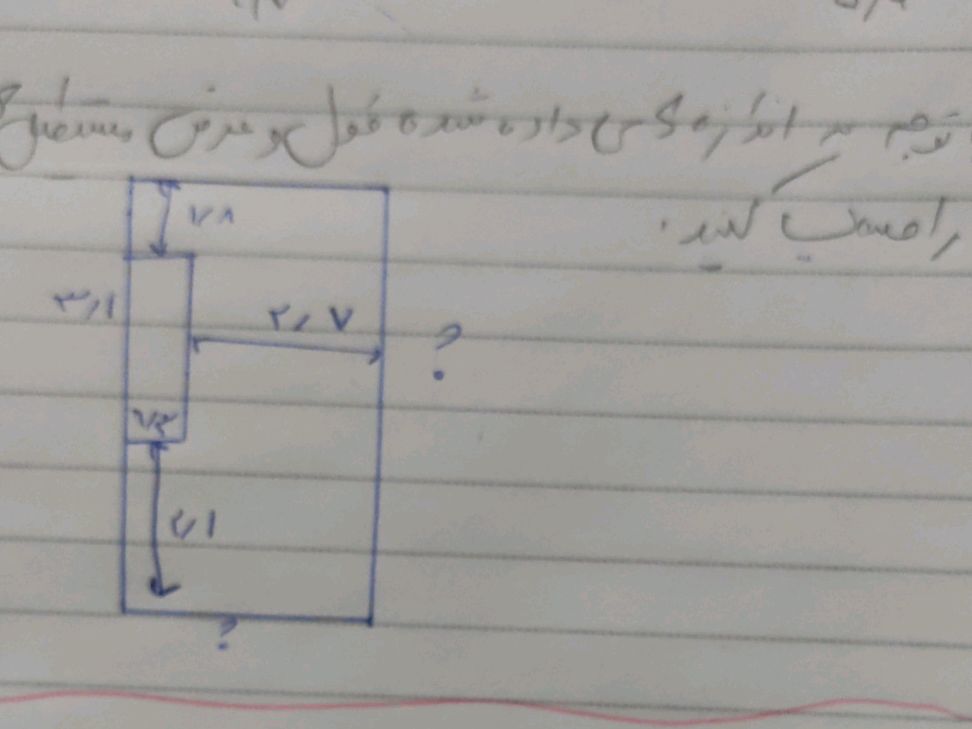 توجه به اندازه های داده شده طول و عرض مستطیل
را حساب کنید.
۳٫۱
۲٫۷
?
۲٫۱
?